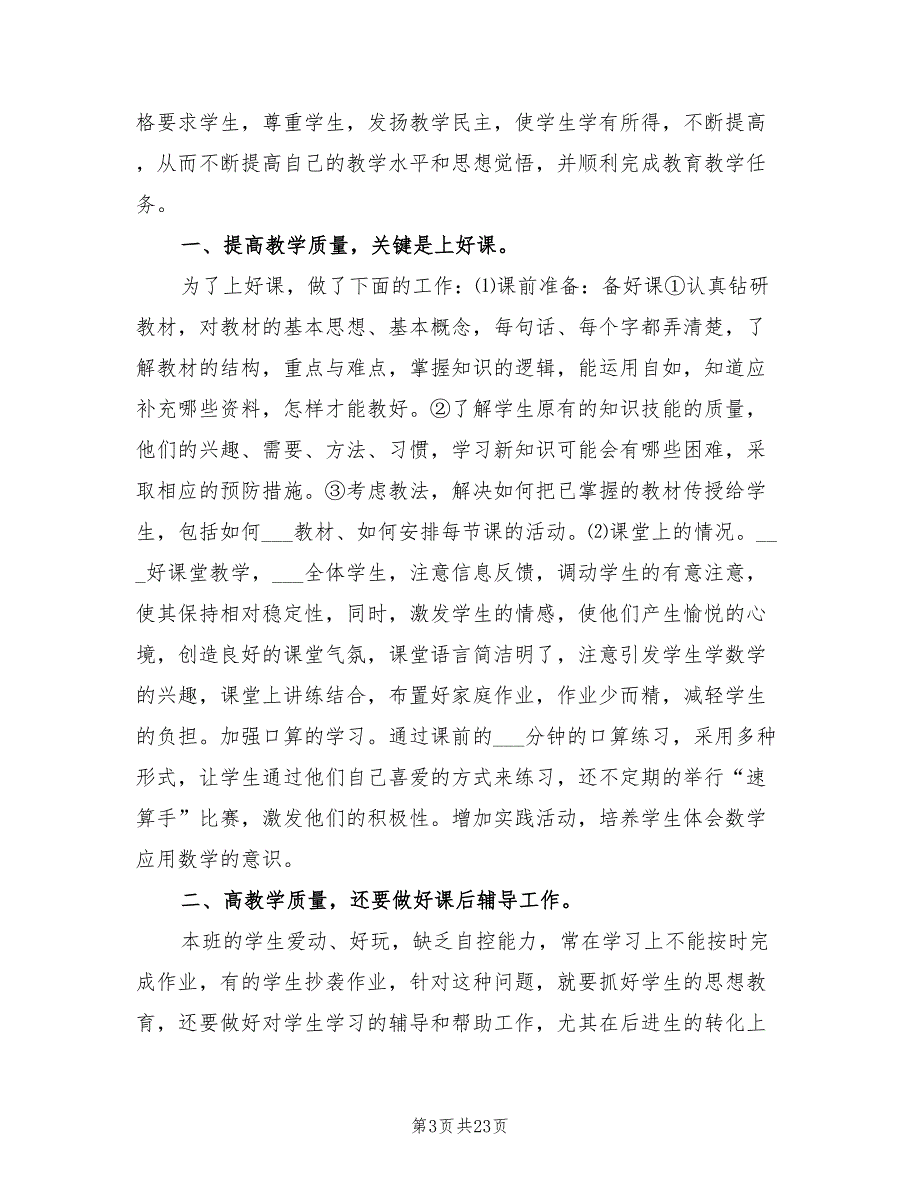 格要求学生，尊重学生，发扬教学民主，使学生学有所得，不断提高
，从而不断提高自己的教学水平和思想觉悟，并顺利完成教育教学任
务。
一、提高教学质量，关键是上好课。
为了上好课，做了下面的工作：⑴课前准备：备好课①认真钻研
教材，对教材的基本思想、基本概念，每句话、每个字都弄清楚，了
解教材的结构，重点与难点，掌握知识的逻辑，能运用自如，知道应
补充哪些资料，怎样才能教好。②了解学生原有的知识技能的质量，
他们的兴趣、需要、方法、习惯，学习新知识可能会有哪些困难，采
取相应的预防措施。③考虑教法，解决如何把已掌握的教材传授给学
生，包括如何___教材、如何安排每节课的活动。⑵课堂上的情况。__
_好课堂教学，___全体学生，注意信息反馈，调动学生的有意注意，
使其保持相对稳定性，同时，激发学生的情感，使他们产生愉悦的心
境，创造良好的课堂气氛，课堂语言简洁明了，注意引发学生学数学
的兴趣，课堂上讲练结合，布置好家庭作业，作业少而精，减轻学生
的负担。加强口算的学习。通过课前的___分钟的口算练习，采用多种
形式，让学生通过他们自己喜爱的方式来练习，还不定期的举行“速
算手”比赛，激发他们的积极性。增加实践活动，培养学生体会数学
应用数学的意识。
二、高教学质量，还要做好课后辅导工作。
本班的学生爱动、好玩，缺乏自控能力，常在学习上不能按时完
成作业，有的学生抄袭作业，针对这种问题，就要抓好学生的思想教
育，还要做好对学生学习的辅导和帮助工作，尤其在后进生的转化上
第3页共23页